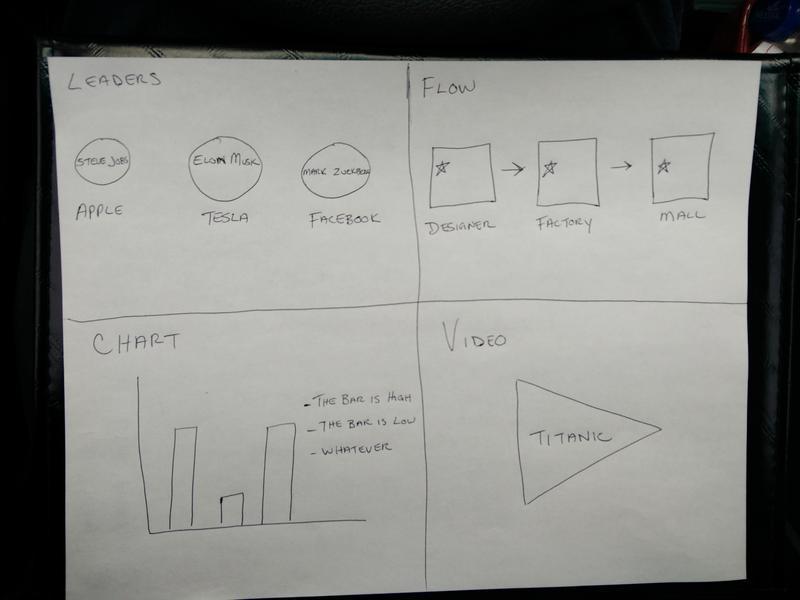 LEADERS
STEVE JOBS
ELON MUSK
MARK ZUCKBERG
APPLE
TESLA
FACEBOOK
FLOW
DESIGNER
FACTORY
MALL
CHART
- THE BAR IS HIGH
- THE BAR IS LOW
- WHATEVER
VIDEO
TITANIC